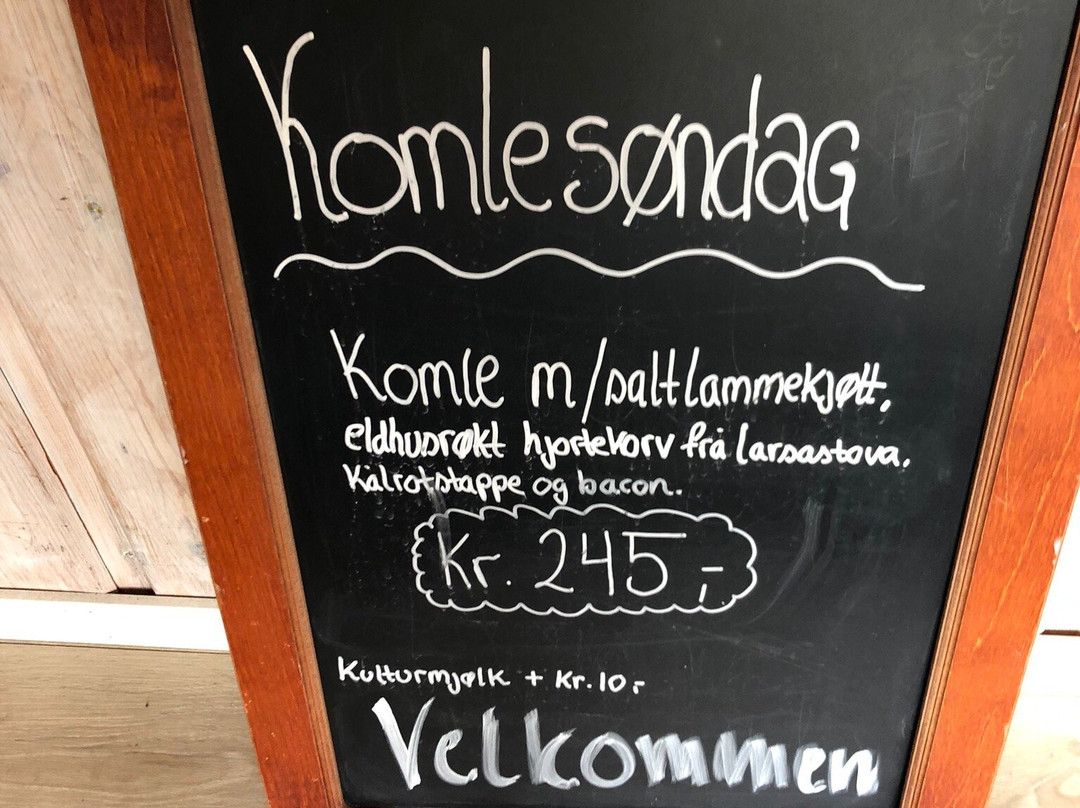 Komlesøndag
Komle m/saltlammekjøtt,
eldhusrøkt hjortekorv frå Larsastova.
Kålrotstappe og bacon.
Kr. 245,-
Kulturmjølk + Kr. 10,-
Velkommen